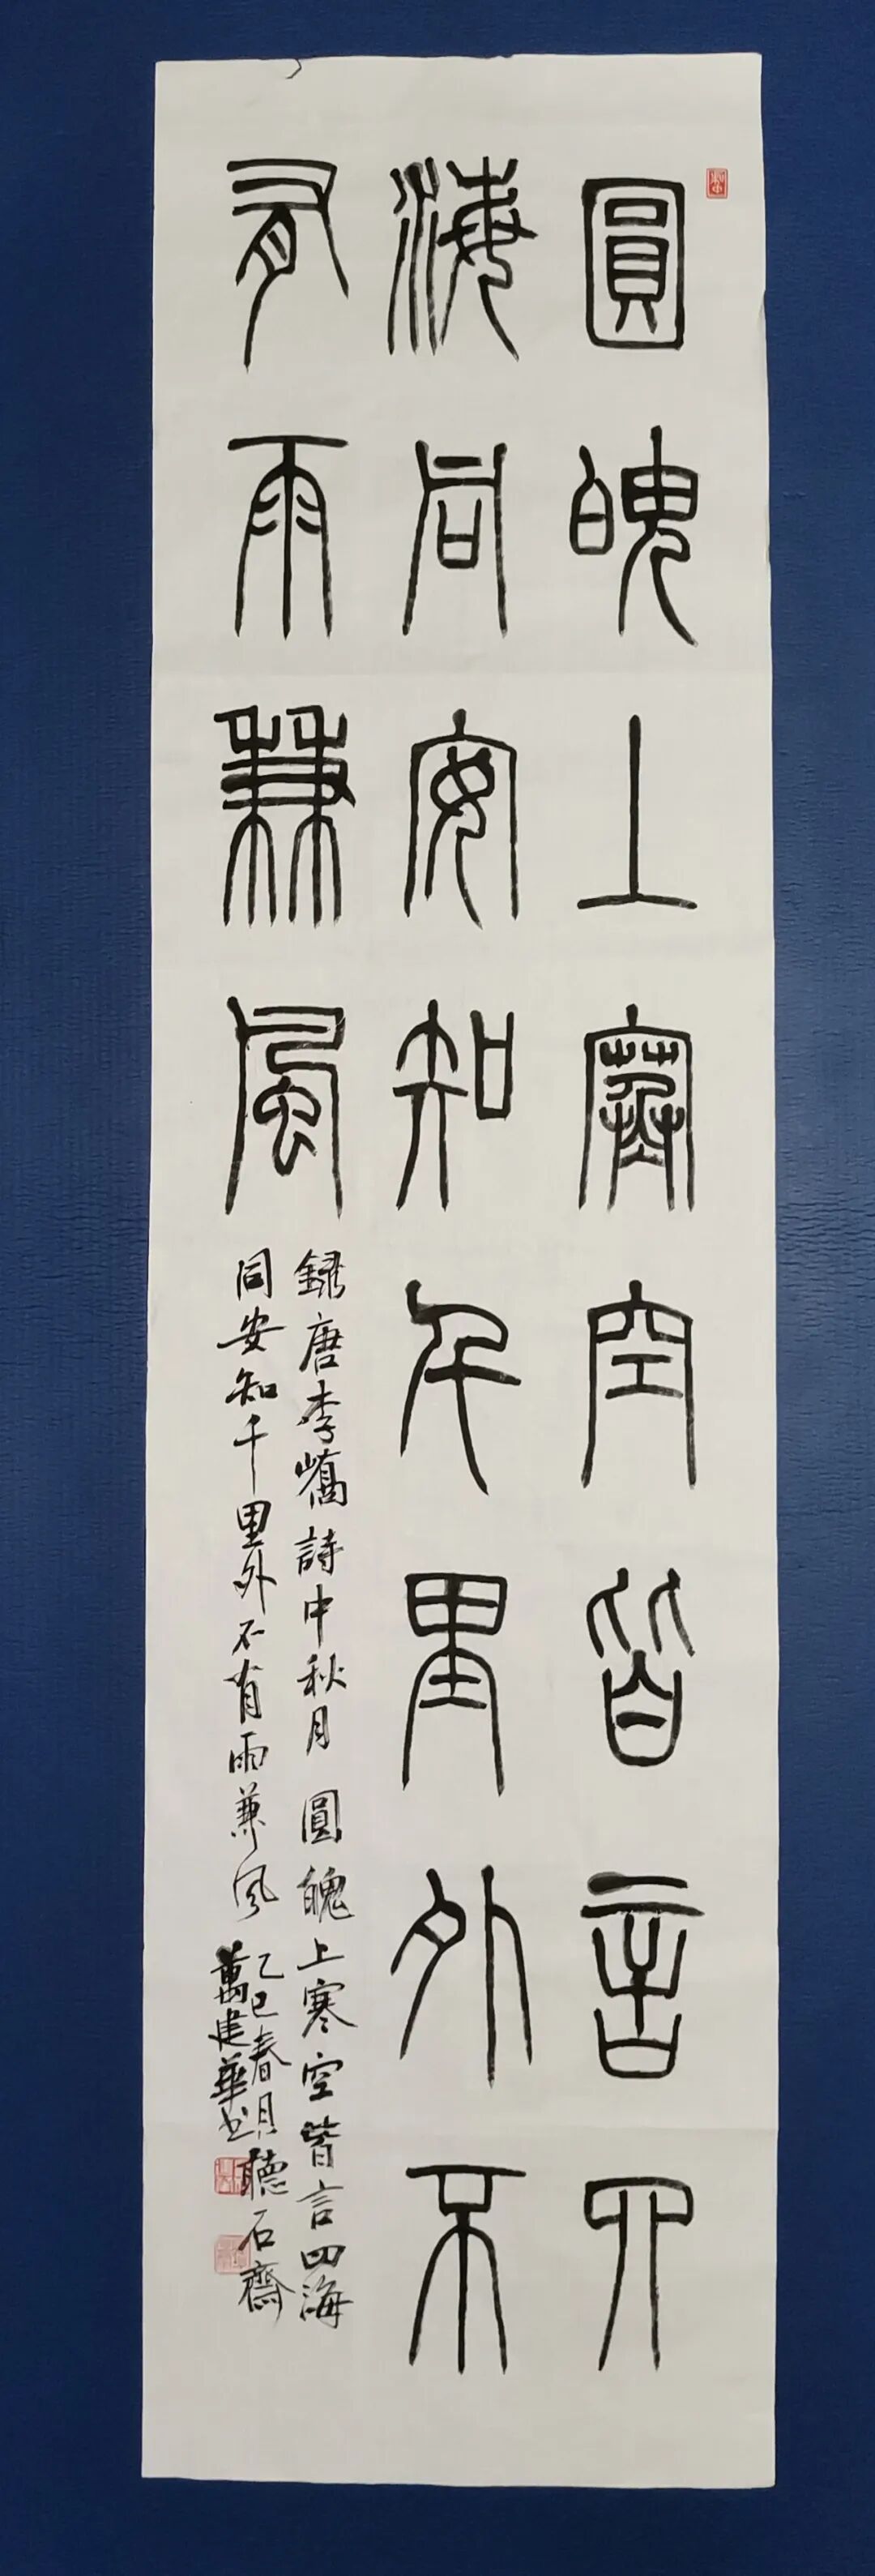 圓魄上寒空皆言四
海同安知千里外不
有雨兼風
錄唐李嶠詩中秋月 圓魄上寒空皆言四海
同安知千里外不有雨兼風 乙巳春月聽石齋
萬建華书